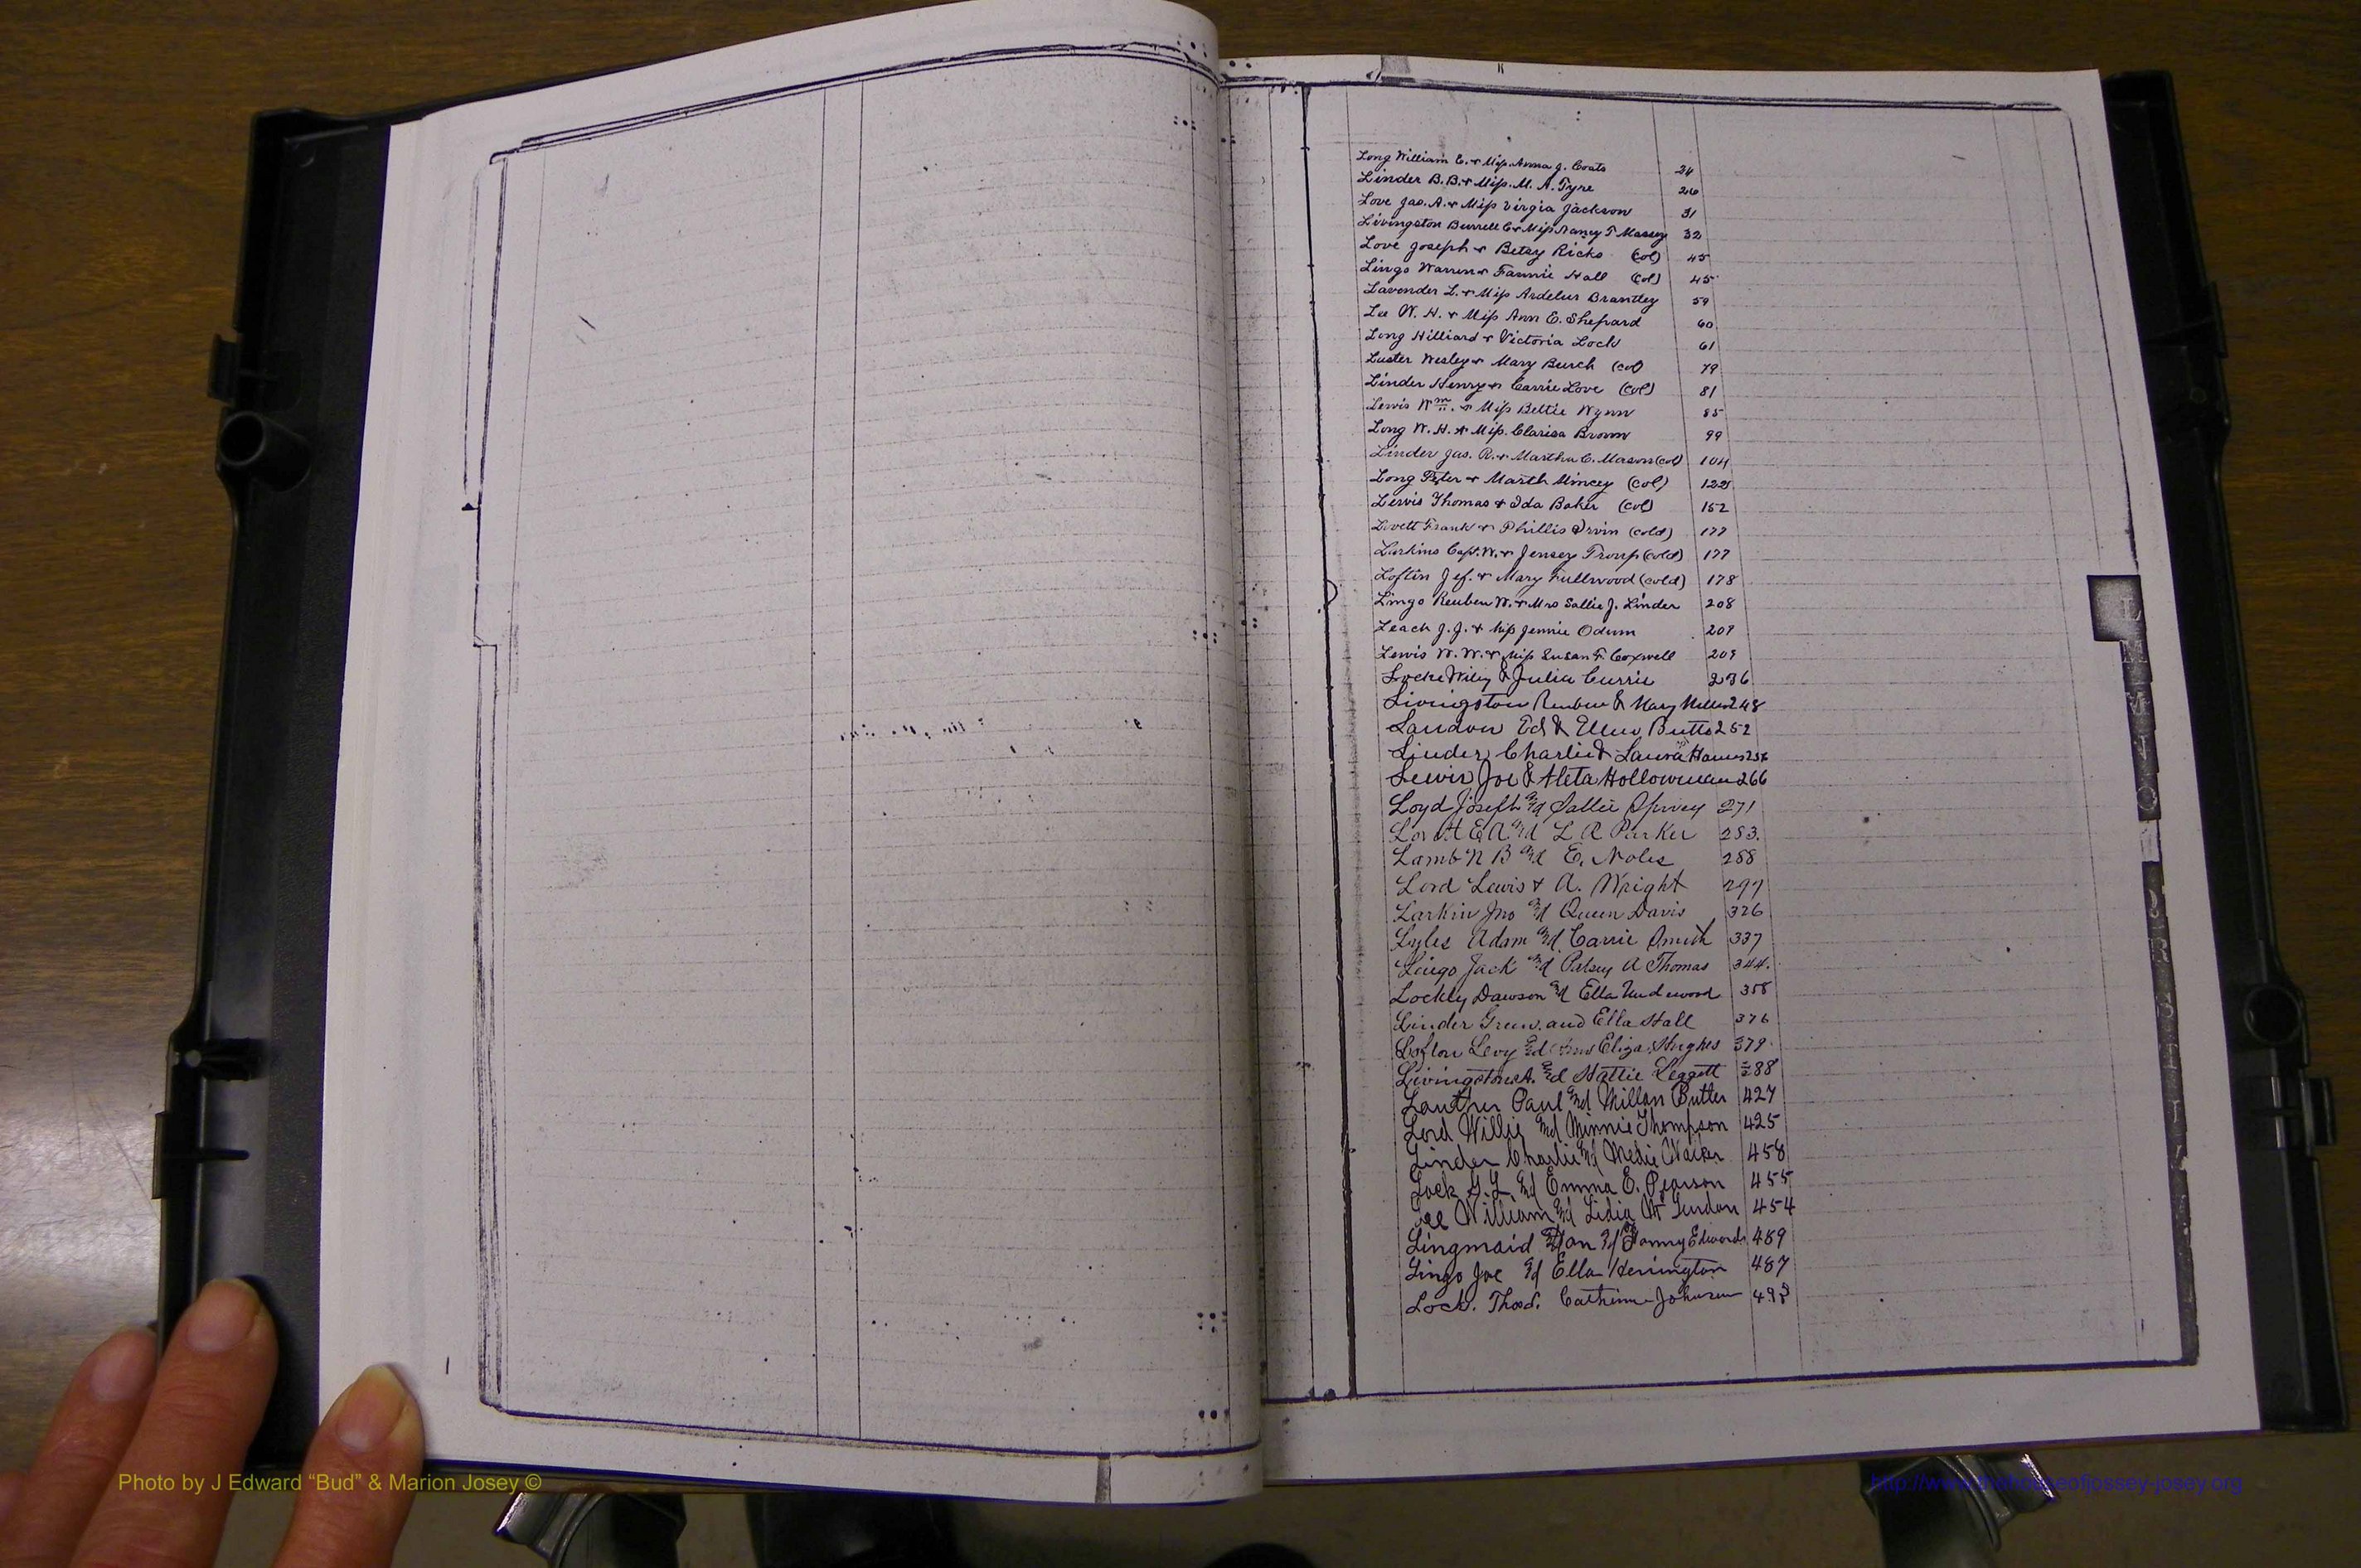 Long William E. & Miss Anna J. Coats 24
Linder B. B. & Miss. M. A. Tyre 26
Love Jas. A. & Miss Virgia Jackson 31
Livingston Burrell C & Miss Nancy T Massey 32
Love Joseph & Betsy Ricks (Col) 45
Lingo Warren & Fannie Hall (Col) 45
Lavender L. & Miss Ardelus Brantley 59
Lee W. H. & Miss Ann E. Shepard 60
Long Hilliard & Victoria Lock 61
Luster Wesley & Mary Burch (Col) 79
Linder Henry & Carrie Love (Col) 81
Lewis Wm. & Miss Bettie Wynn 85
Long W. H. & Miss. Clarisa Brown 99
Linder Jas. R. & Martha C. Mason (Col) 104
Long Peter & Marth Mincey (Col) 122
Lewis Thomas & Ida Baker (Col) 152
Lovett Frank & Phillis Irvin (Cold) 177
Larkins Capt. W. & Jensey Troup (Cold) 177
Loftin Jef. & Mary Fullwood (Cold) 178
Lingo Reuben W. & Mrs Sallie J. Linder 208
Leach J. J. & Miss Jennie Odum 209
Lewis W. W. & Miss Susan F. Coxwell 209
Locke Wiley & Julia Currie 236
Livingston Reuben & Mary Miller 248
Landon Ed & Ellen Butts 252
Linder Charlie & Laura 256
Lewis Joe & Aleta Hollowman 266
Loyd Joseph and Sallie Spivey 271
E A and L A Parker 283.
Lamb N B and E. Noles 288
Lord Lewis & A. Wright 297
Larkin Jno and Queen Davis 326
Lyles Adam and Carrie Smith 337
Lingo Jack and Patsey A Thomas 344.
Lockly Dawson and Ella Underwood 358
Linder Green and Ella Hall 376
Lofton Levy and Eliza Hughes 379
Livingston A. and Hattie Leggett 388
Paul and Millan Butler 427
Lord Willie and Minnie Thompson 425
Linder Charlie and Medie 458
Lock G. L. and Emma E. Pearson 455
Lee William and Lidia 454
Lingmaid and Fanny Edwards 489
Lingo Joe and Ella Herrington 487
Lock. Thos. Catherine Johnson
L
Photo by J Edward “Bud” & Marion Josey ©
http://www.thehouseofjossey-josey.org